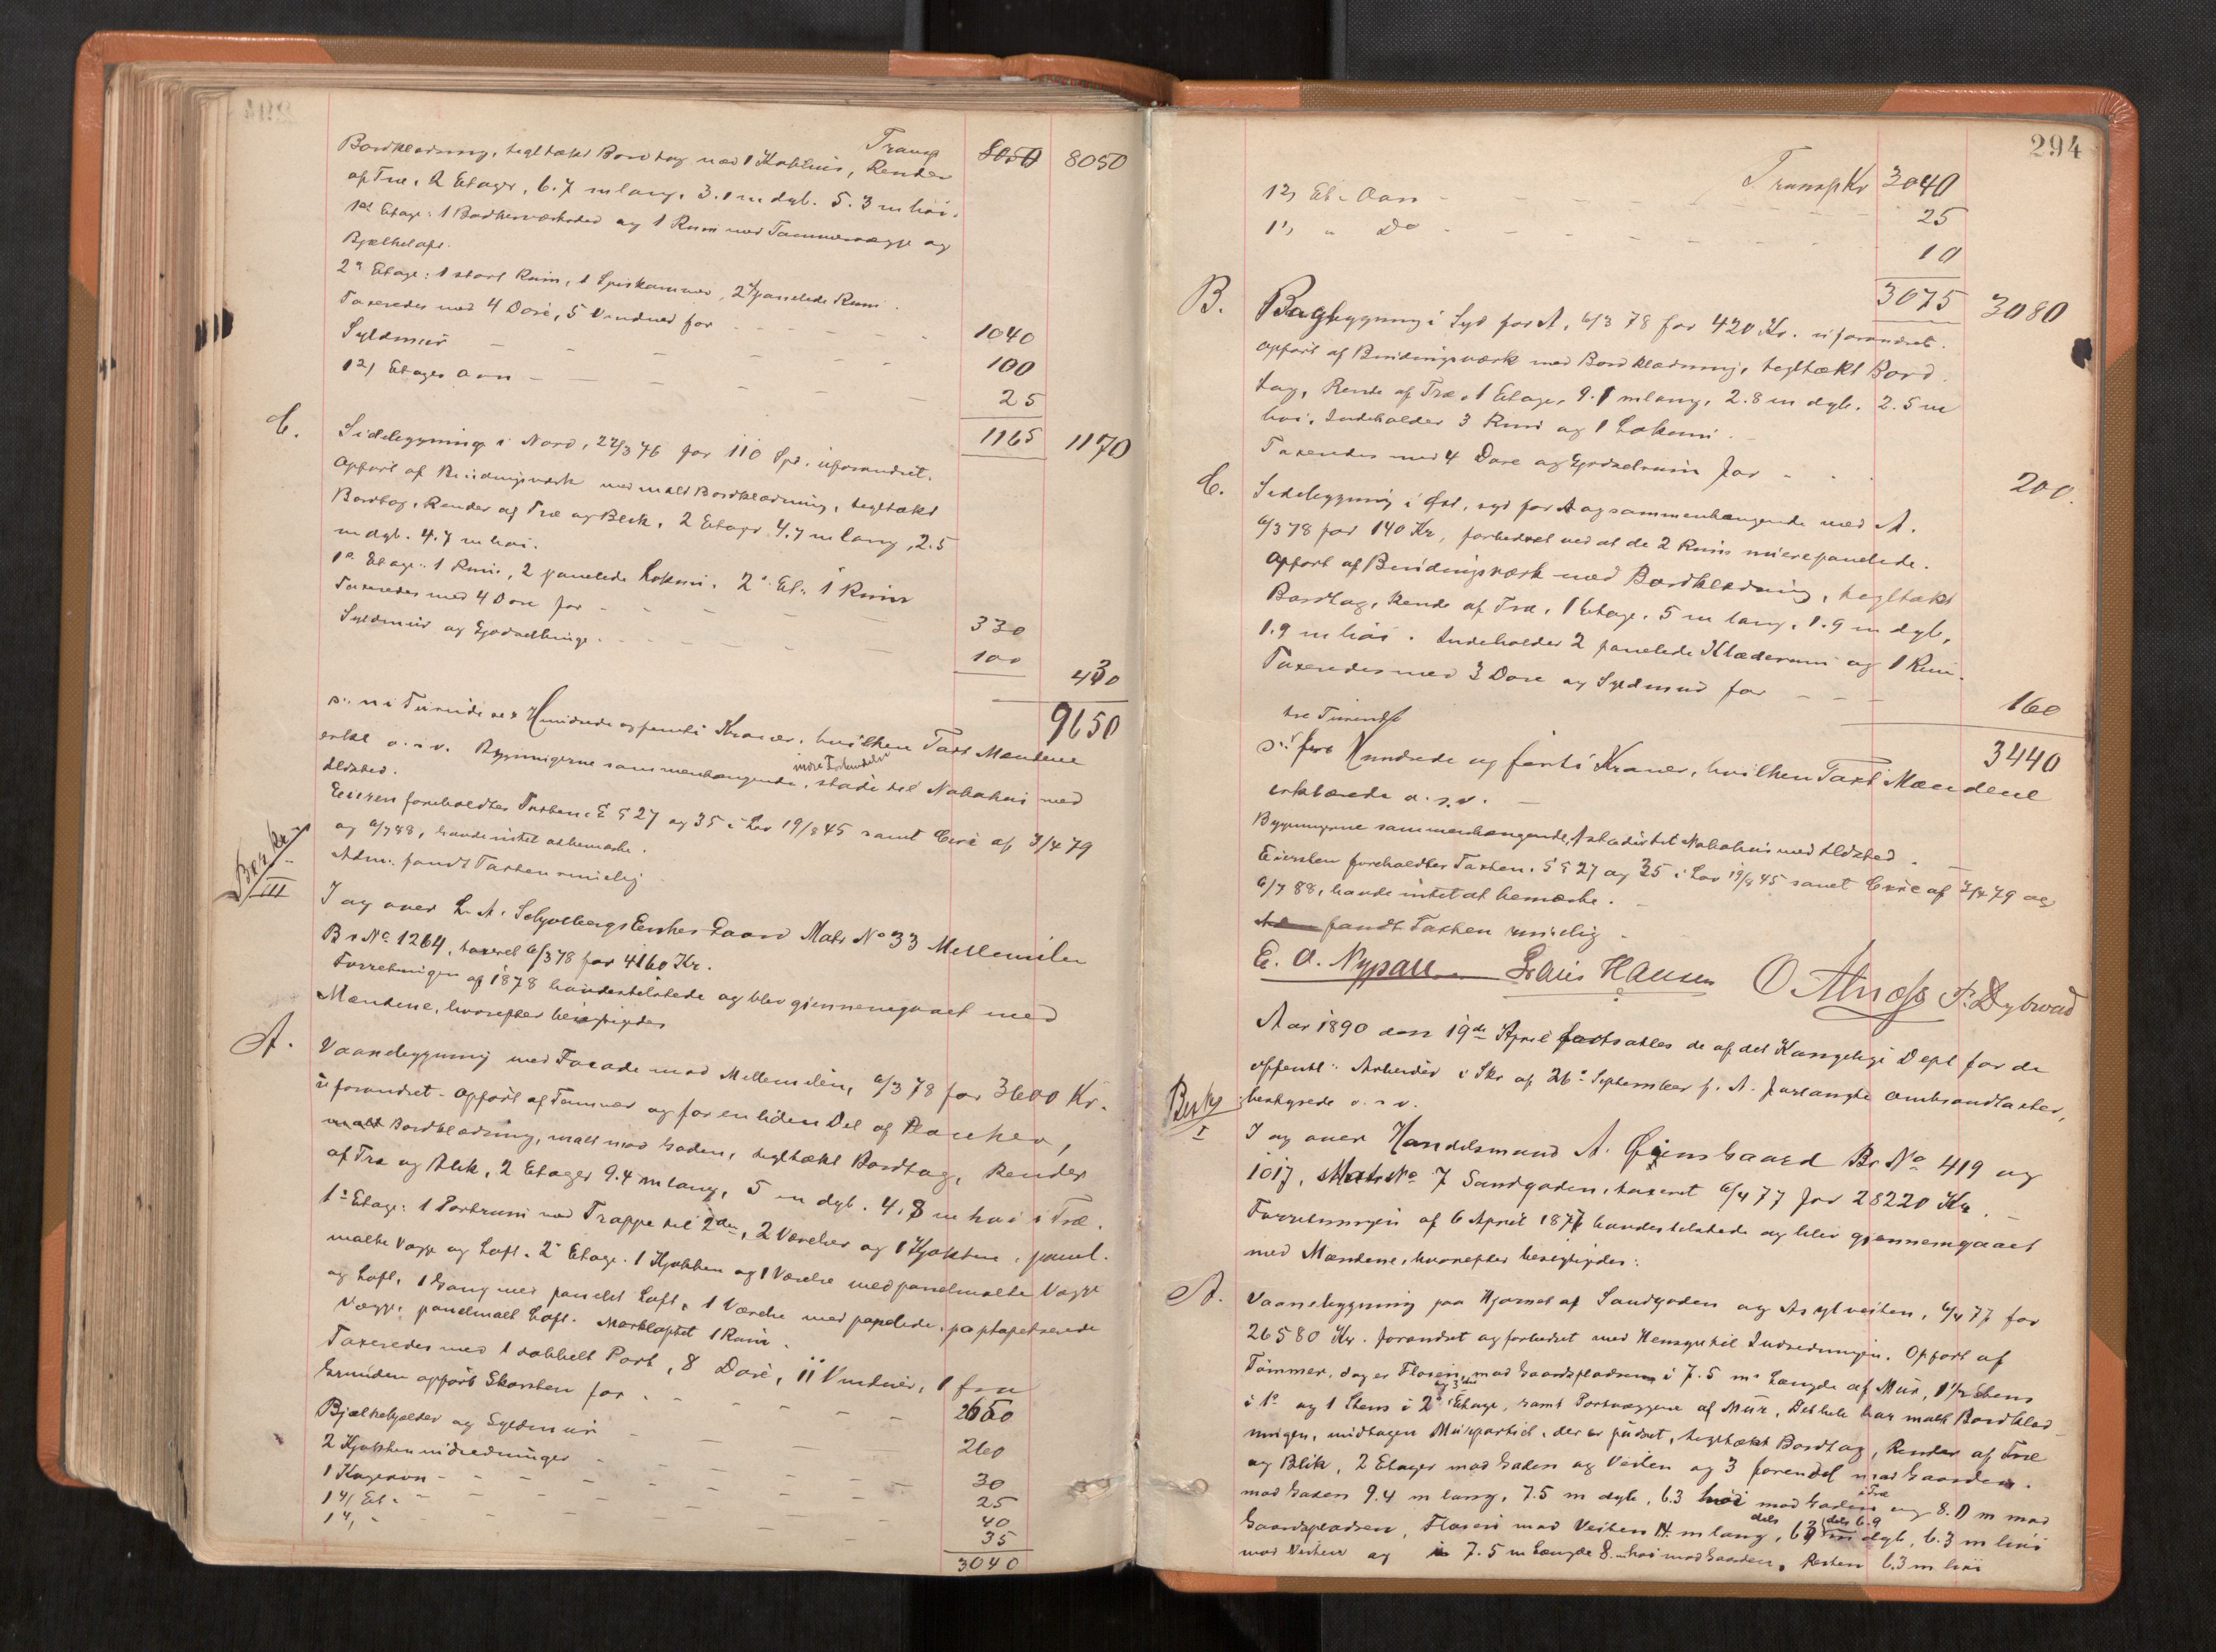 Transp 8050 8050
Bordklædning, tegltækt Bordtag med 1 Kobbhus, Render
af Træ, 2 Etager, 6.7 m lang, 3.1 m dyb. 5.3 m høi.
1ste Etage: 1 Bødkerværksted og 1 Rum med Tømmervægge og
Bjælkeloft.
2n Etage: 1 stort Rum, 1 Spiskammer, 2 panelede Rum.
Taxeredes med 4 Døre, 5 Vinduer for 1040
Syldmur 100
1 2/ Etages Ovn 25
1165 1170
C. Sidebygning i Nord, 27/3 76 for 110 Spd. uforandret.
Opført af Bindingsværk med malt Bordklædning, tegltækt
Bordtag, Render af Træ og Blik, 2 Etager 4.7 m lang, 2.5
m dyb. 4.7 m høi.
1e Etage: 1 Rum, 2 panelede Lokrum. 2n Et: 1 Rum
Taxeredes med 4 Døre for 330
Syldmur og Gjødselbinge 100
430
9650
o: ni Tusinde sex Hundrede og femti Kroner, hvilken Taxt Mændene
erkl. o. s. v. Bygningerne sammenhængende, støde til Nabohus med
Ildsted.
Eieren foreholdtes Taxten, § 27 og 35 i Lov 19/8 45 samt Circ af 3/4 79
og 6/7 88, havde intet at bemærke.
Adm: fandt Taxten rimelig
III
I og over L. A. Schjølbergs Enkes Gaard Matr No 33 Mellemilen
Br No 1264, taxeret 6/3 78 for 4160 Kr.
Forretningen af 1878 havdes tilstede og blev gjennemgaaet med
Mændene, hvorefter besigtiges
A. Vaanebygning med Facade mod Mellemilen, 6/3 78 for 3600 Kr.
uforandret. Opført af Tømmer og for en liden Del af Planker,
malt Bordklædning, malt mod Gaden, tegltækt Bordtag, Render
af Træ og Blik, 2 Etager 9.4 m lang, 5 m dyb. 4.8 m høi i Træ.
1e Etage: 1 Portrum med Trappe til 2den, 2 Værelser og 1 Kjøkken, panel-
malte Vægge og Loft. 2n Etage: 1 Kjøkken og 1 Værelse med panelmalte Vægge
og Loft, 1 Gang med panelet Loft, 1 Værelse med panelede, paptapetserede
Vægge, panelmalt Loft. Mørkloftet 1 Rum.
Taxeredes med 1 dobbelt Port, 8 Døre, 11 Vinduer, 1 fra
Grunden opført Skorsten for 2650
Bjælkekjelder og Syldmur 260
2 Kjøkkenindredninger 30
1 Kogeovn 25
1 4/ Et. 40
1 4/ 35
3040
294
Transp Kr 3040
1 2/ Et. Ovn 25
1 1/ " Do 10
3075 3080
B. Bagbygning i Syd for A, 6/3 78 for 420 Kr. uforandret.
Opført af Bindingsværk med Bordklædning, tegltækt Bord-
tag, Rende af Træ, 1 Etage, 9.1 m lang, 2.8 m dyb, 2.5 m
høi, Indeholder 3 Rum og 1 Lokrum.
Taxeredes med 4 Døre og Gjødselrum for 200.
C. Sidebygning i Øst, syd for A og sammenhængende med A.
6/3 78 for 140 Kr, forbedret ved at de 2 Rum nu ere panelede.
Opført af Bindingsværk med Bordklædning, tegltækt
Bordtag, Rende af Træ, 1 Etage, 5 m lang, 1.9 m dyb,
1.9 m høi. Indeholder 2 panelede Klæderum og 1 Rum.
Taxeredes med 3 Døre og Syldmur for 160
3440
tre Tusinde
o: fire Hundrede og førti Kroner, hvilken Taxt Mændene
erklærede o. s. v.
Bygningerne sammenhængende, stødte til Nabohus med Ildsted.
Eiersken foreholdtes Taxten, §§ 27 og 35 i Lov 19/8 45 samt Circ af 3/4 79 og
6/7 88, havde intet at bemærke.
fandt Taxten rimelig.
E. O. Nypan Lauis Hansen O Alnæss P. Dybwad
Aar 1890 den 19de April fortsattes de af det Kongelige Dept for de
offentl: Arbeider i Skr af 26e September f. A. forlangte Ombrandtaxter,
bestyrede o. s. v.
I
I og over Handelsmand A. Øiens Gaard Br No 419 og
1017, Matr No 7 Sandgaden, taxeret 6/4 77 for 28220 Kr.
Forretningen af 6 April 1877 havdes tilstede og blev gjennemgaaet
med Mændene, hvorefter besigtiges:
A. Vaanebygning paa Hjørnet af Sandgaden og Asylveiten, 6/4 77 for
26580 Kr. forandret og forbedret med Hensyn til Indredningen. Opført af
Tømmer, dog er Fløien, mod Gaardspladsen i 7.5 m. Længde af Mur, 1 1/2 Stens
i 1e og 1 Stens i 2n og 3die Etage, samt Portvæggene af Mur, Det hele har malt Bordklæd-
ningen, undtagen Murpartiet, der er pudset, tegltækt Bordtag, Render af Træ
og Blik, 2 Etager mod Gaden og Veiten og 3 forendel mod Gaarden.
mod Gaden 9.4 m lang, 7.5 m dyb, 6.3 høi mod Gaden i Træ og 8.0 m mod
Gaardspladsen, Fløien mod Veiten 14 m lang, dels dels 6.9 dyb, 6.3 m høi
mod Veiten og i 7.5 m Længde 8 m høi mod Gaarden, Resten 6.3 m høi